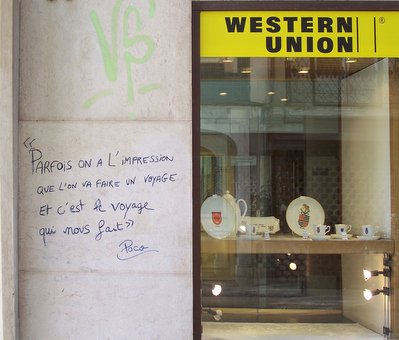 WESTERN
UNION ®
« PARFOIS ON A L'IMPRESSION
QUE L'ON VA FAIRE UN VOYAGE
ET C'EST LE VOYAGE
QUI NOUS FAIT »